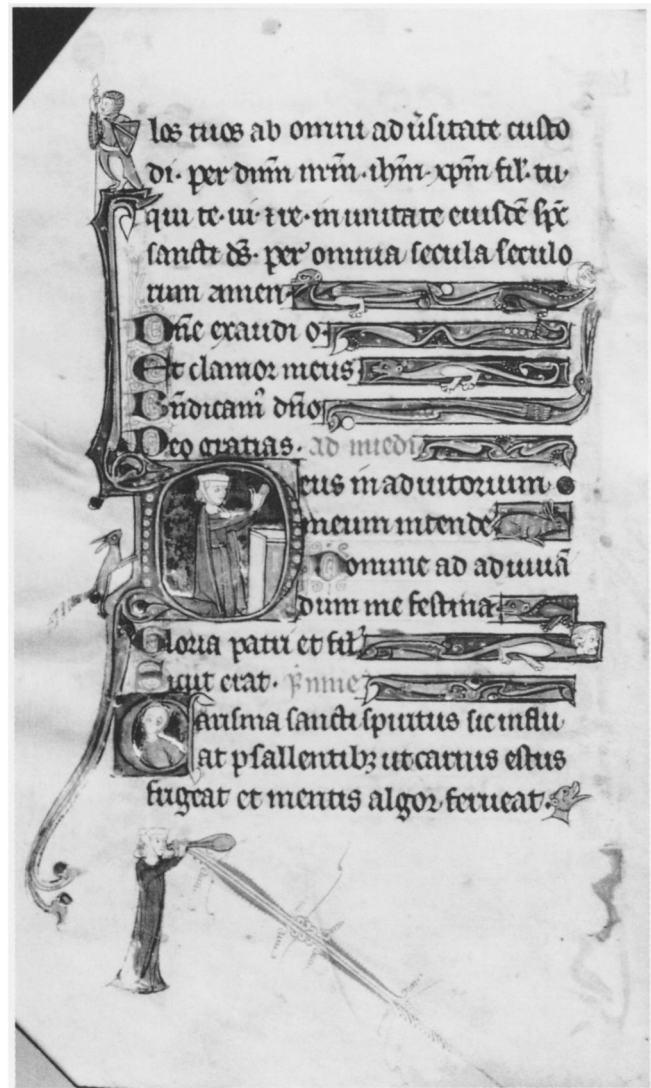 los tuos ab omni adũsitate custo
di · per dnm̃ nrm̃ · ihm̃ · xpm̃ fil · tu ·
qui te · ui · ⁊ re · in unitate eiusdẽ sp̃c
sancti ds̃ · per omnia secula seculo
rum amen ·
Dñe exaudi o ·
Et clamor meus
Bñdicam' dño
Deo gratias · ad medi
Deus in adiutorium
meum intende
Domine ad adiuuã
dum me festina
Gloria patri et fil
Sicut erat ·
Carisma sancti spiritus sic influ
at psallentibꝫ ut carnis estus
frigeat et mentis algor ferueat ·